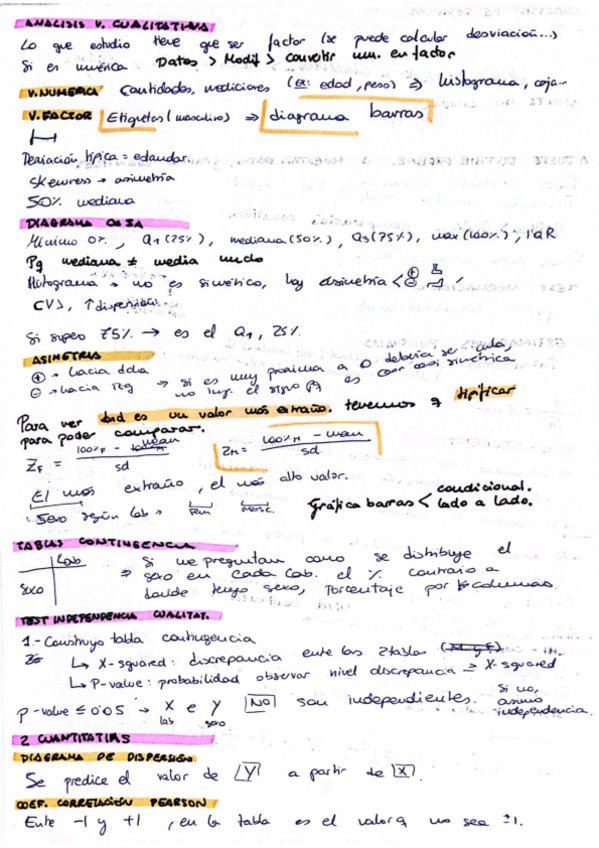 ANALISIS V. CUALITATIVA
Lo que estudio tiene que ser factor (se puede calcular desviación...)
Si es numérica Datos > Modif > convertir num. en factor
V. NUMERICA Cantidades, mediciones (ex: edad, peso) ⇒ histograma, caja...
V. FACTOR Etiquetas (masculino) ⇒ diagrama barras
Desviación típica = estandar.
Skewness → asimetría
50% mediana
DIAGRAMA CAJA
Mínimo 0%, Q1 (25%), mediana (50%), Q3 (75%), max (100%), IQR
Pq mediana ≠ media
Histograma → no es simétrico, hay asimetría < ⊕ ⊖
CV>, ↑ dispersión.
Si supero 75% → es el Q1, 25%.
ASIMETRIA
⊕ → hacia dcha
⊖ → hacia izq ⇒ si es muy proxima a 0 debería se
no imp. el signo es casi simétrica
Para ver cual es un valor más extraño. tenemos q tipificar
para poder comparar.
ZF = 100%F - mean / sd
ZM = 100%M - mean / sd
El más extraño, el más alto valor.
Sexo según lab → fem masc. Gráfica barras < condicional. lado a lado.
TABLAS CONTINGENCIA
Lab
sexo
Si me preguntan como se distribuye el
⇒ sexo en cada lab. el % contrario a
donde tengo sexo, porcentaje por columnas.
TEST INDEPENDENCIA CUALITAT.
1.- Construyo tabla contingencia
↳ X-squared: discrepancia entre las 2 tablas
↳ P-value: probabilidad observar nivel discrepancia = X-squared
p-value ≤ 0'05 → X e Y NO son independientes. Si no, asumo independencia.
lab sexo
2 CUANTITATIVAS
DIAGRAMA DE DISPERSIÓN
Se predice el valor de Y a partir de X.
COEF. CORRELACIÓN PEARSON
Ente -1 y +1, en la tabla es el valor q no sea ±1.